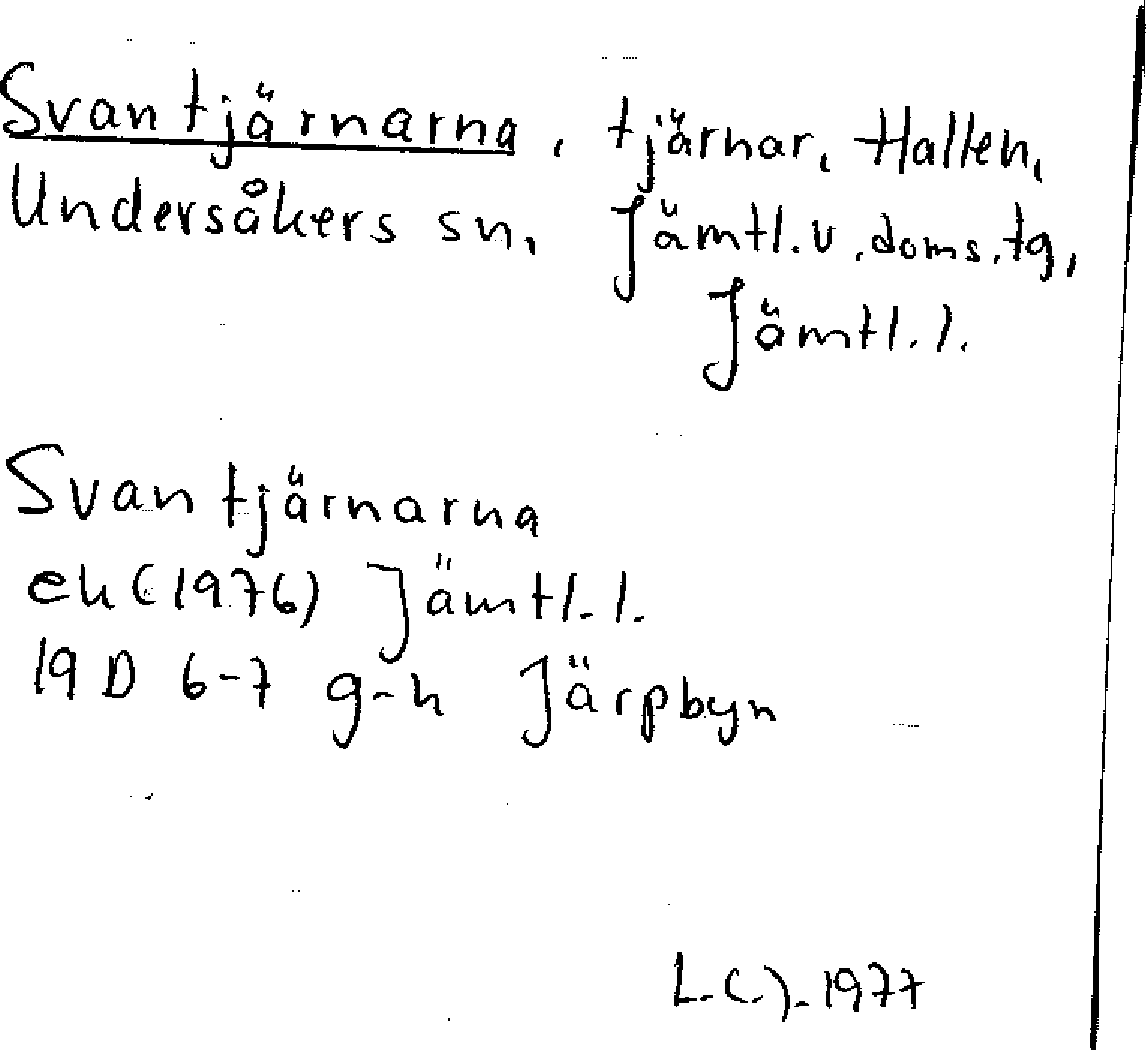 Svantjärnarna, tjärnar, Hallen,
Undersåkers sn, Jämtl.v.doms.tg,
Jämtl.l.
Svantjärnarna
ek (1976) Jämtl.l.
19 D 6-7 g-h Järpbyn
1977